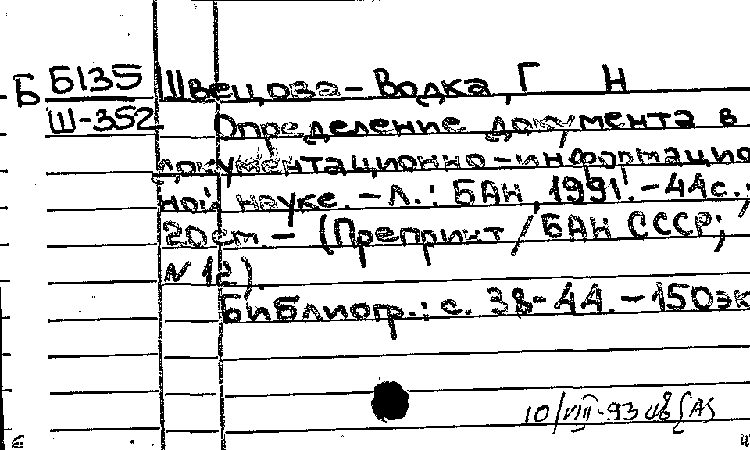 Б Б135 Швецова-Водка, Г Н
Ш-352 Определение документа в
документационно-информацио
ной науке. - Л.: БАН, 1991. - 44с.;
20см - (Препринт / БАН СССР;
N 12).
Библиогр.: с. 38-44. - 150эк
10/VIII-93